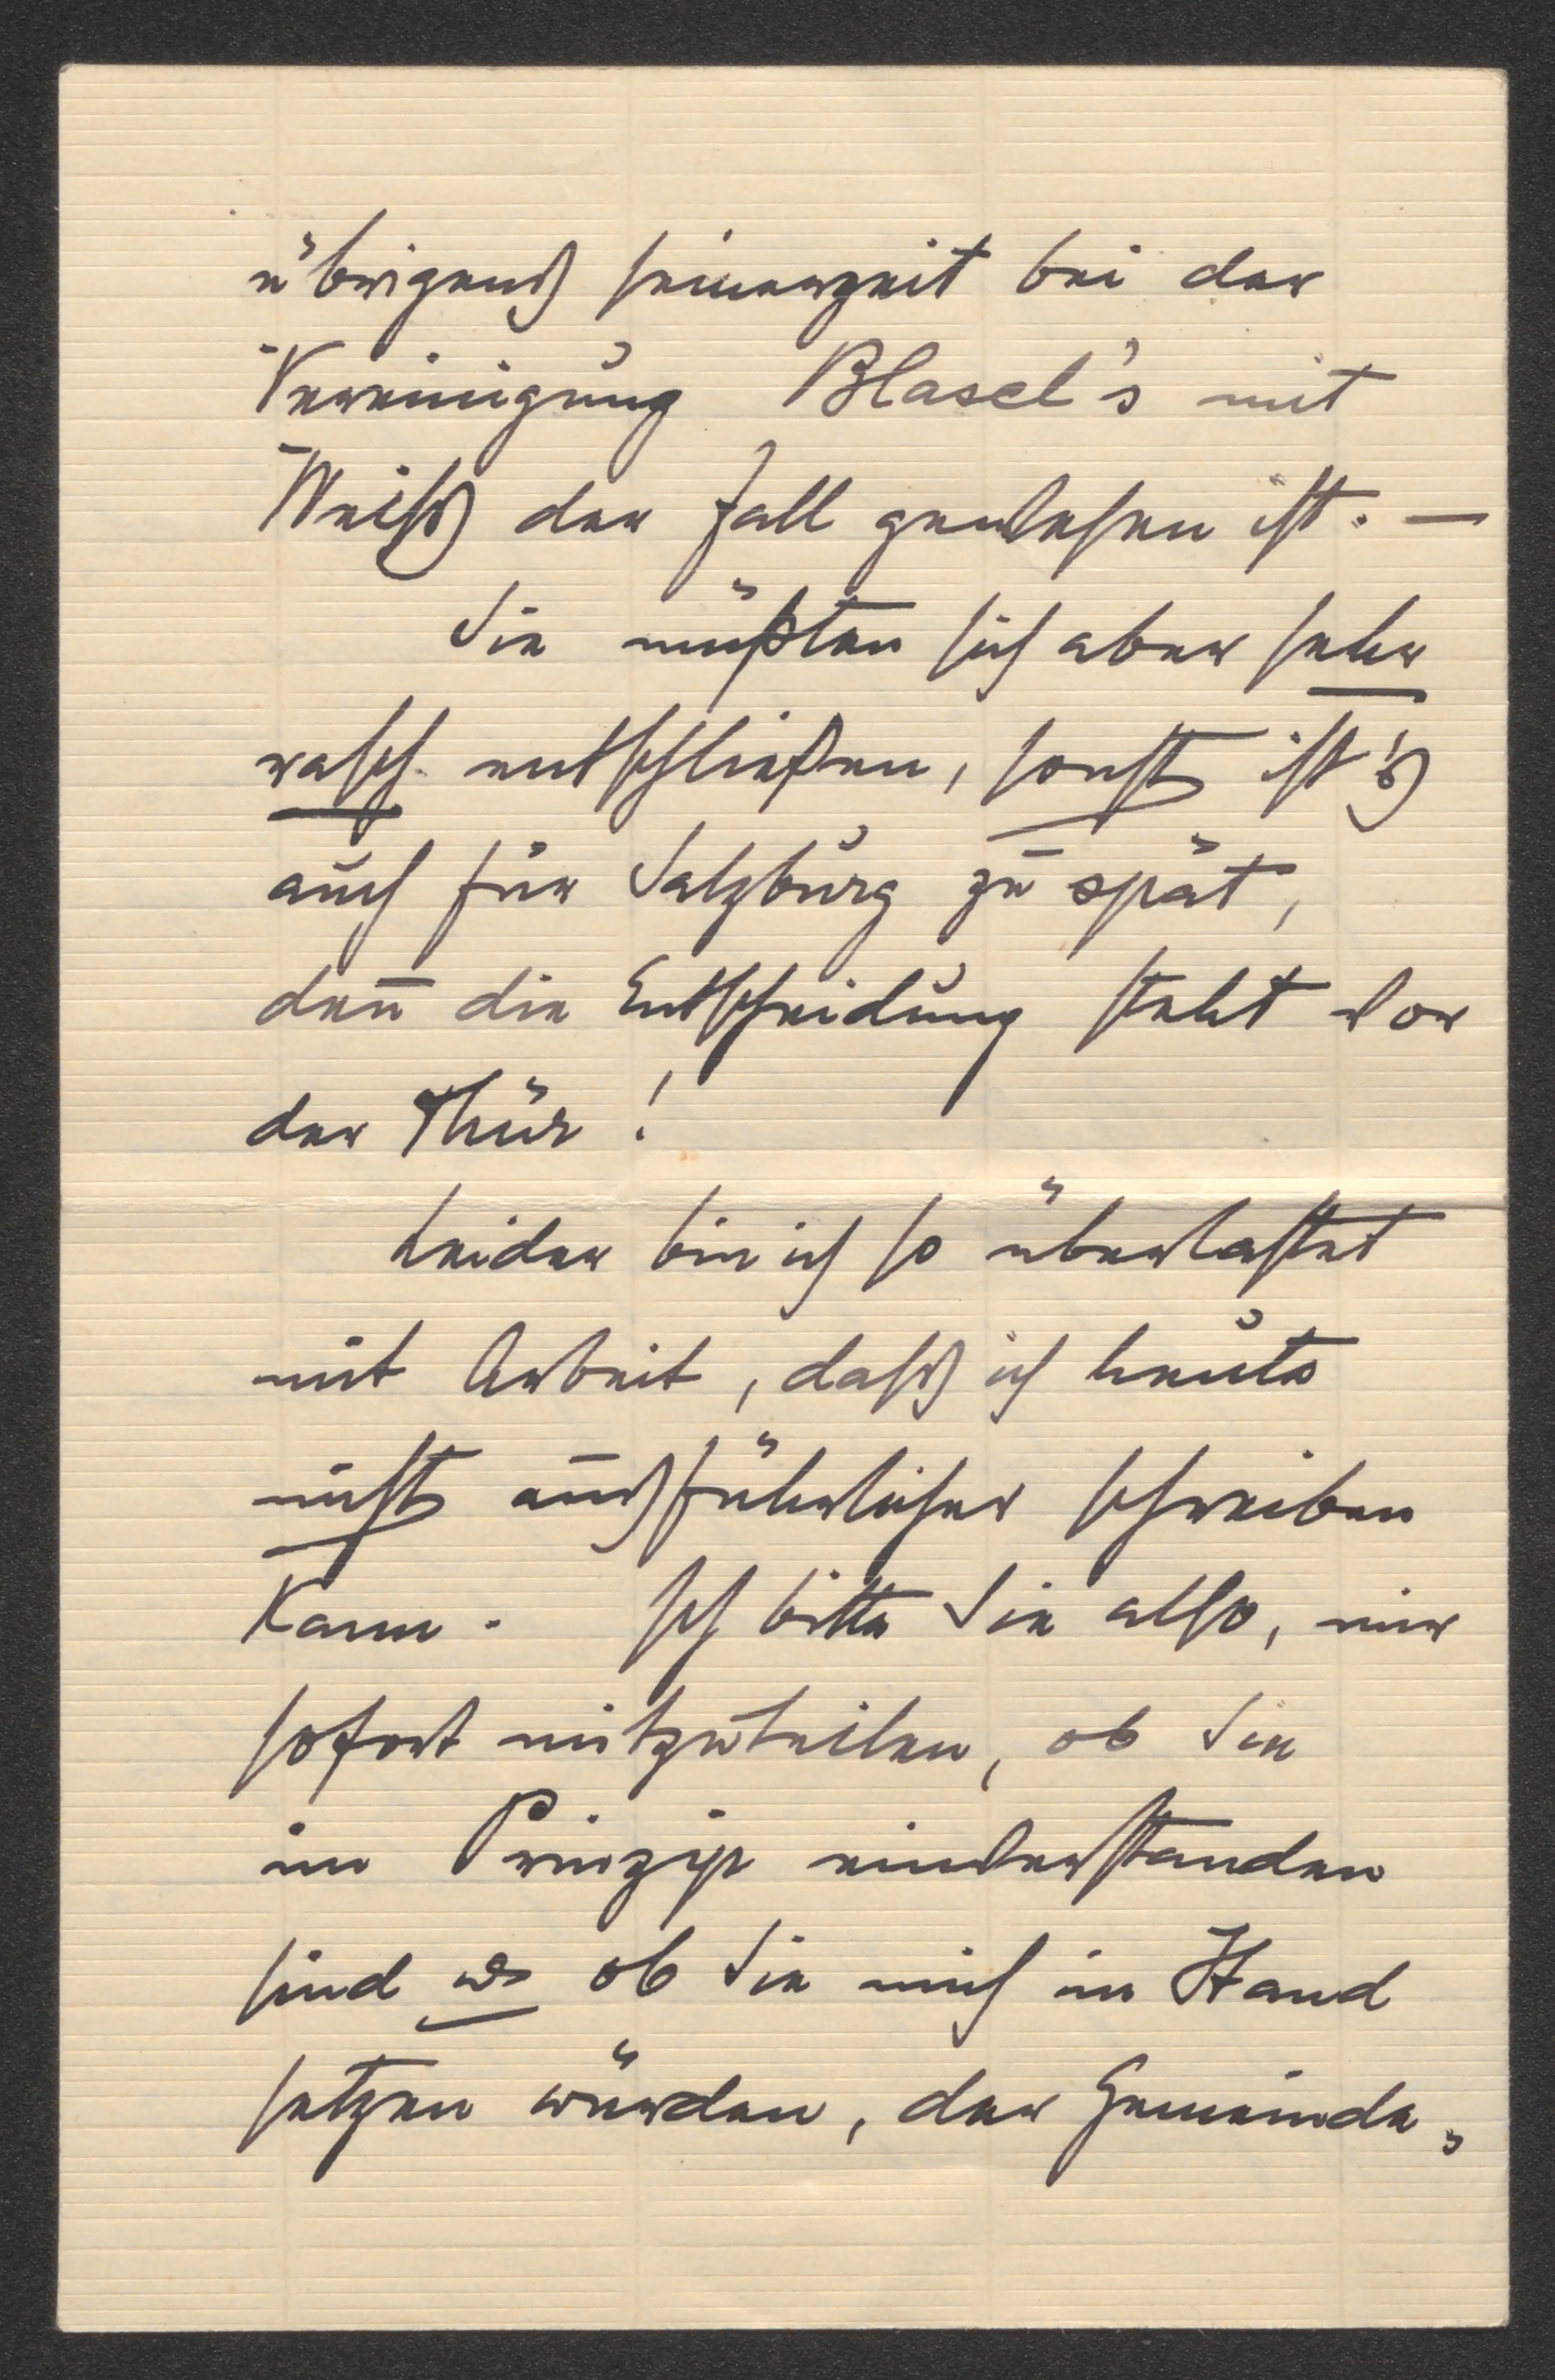 übrigens seinerzeit bei der
Vereinigung Blasel's mit
Weiß der Fall gewesen ist. —
Sie müßten sich aber sehr
rasch entschließen, sonst ist's
auch für Salzburg zu spät,
den̄ die Entscheidung steht vor
der Thür!
Leider bin ich so überlastet
mit Arbeit, daß ich heute
nicht ausführlicher schreiben
kann. Ich bitte Sie also, mir
sofort mitzuteilen, ob Sie
im Prinzip einverstanden
sind u ob Sie mich in Stand
setzen würden, der Gemeinde-